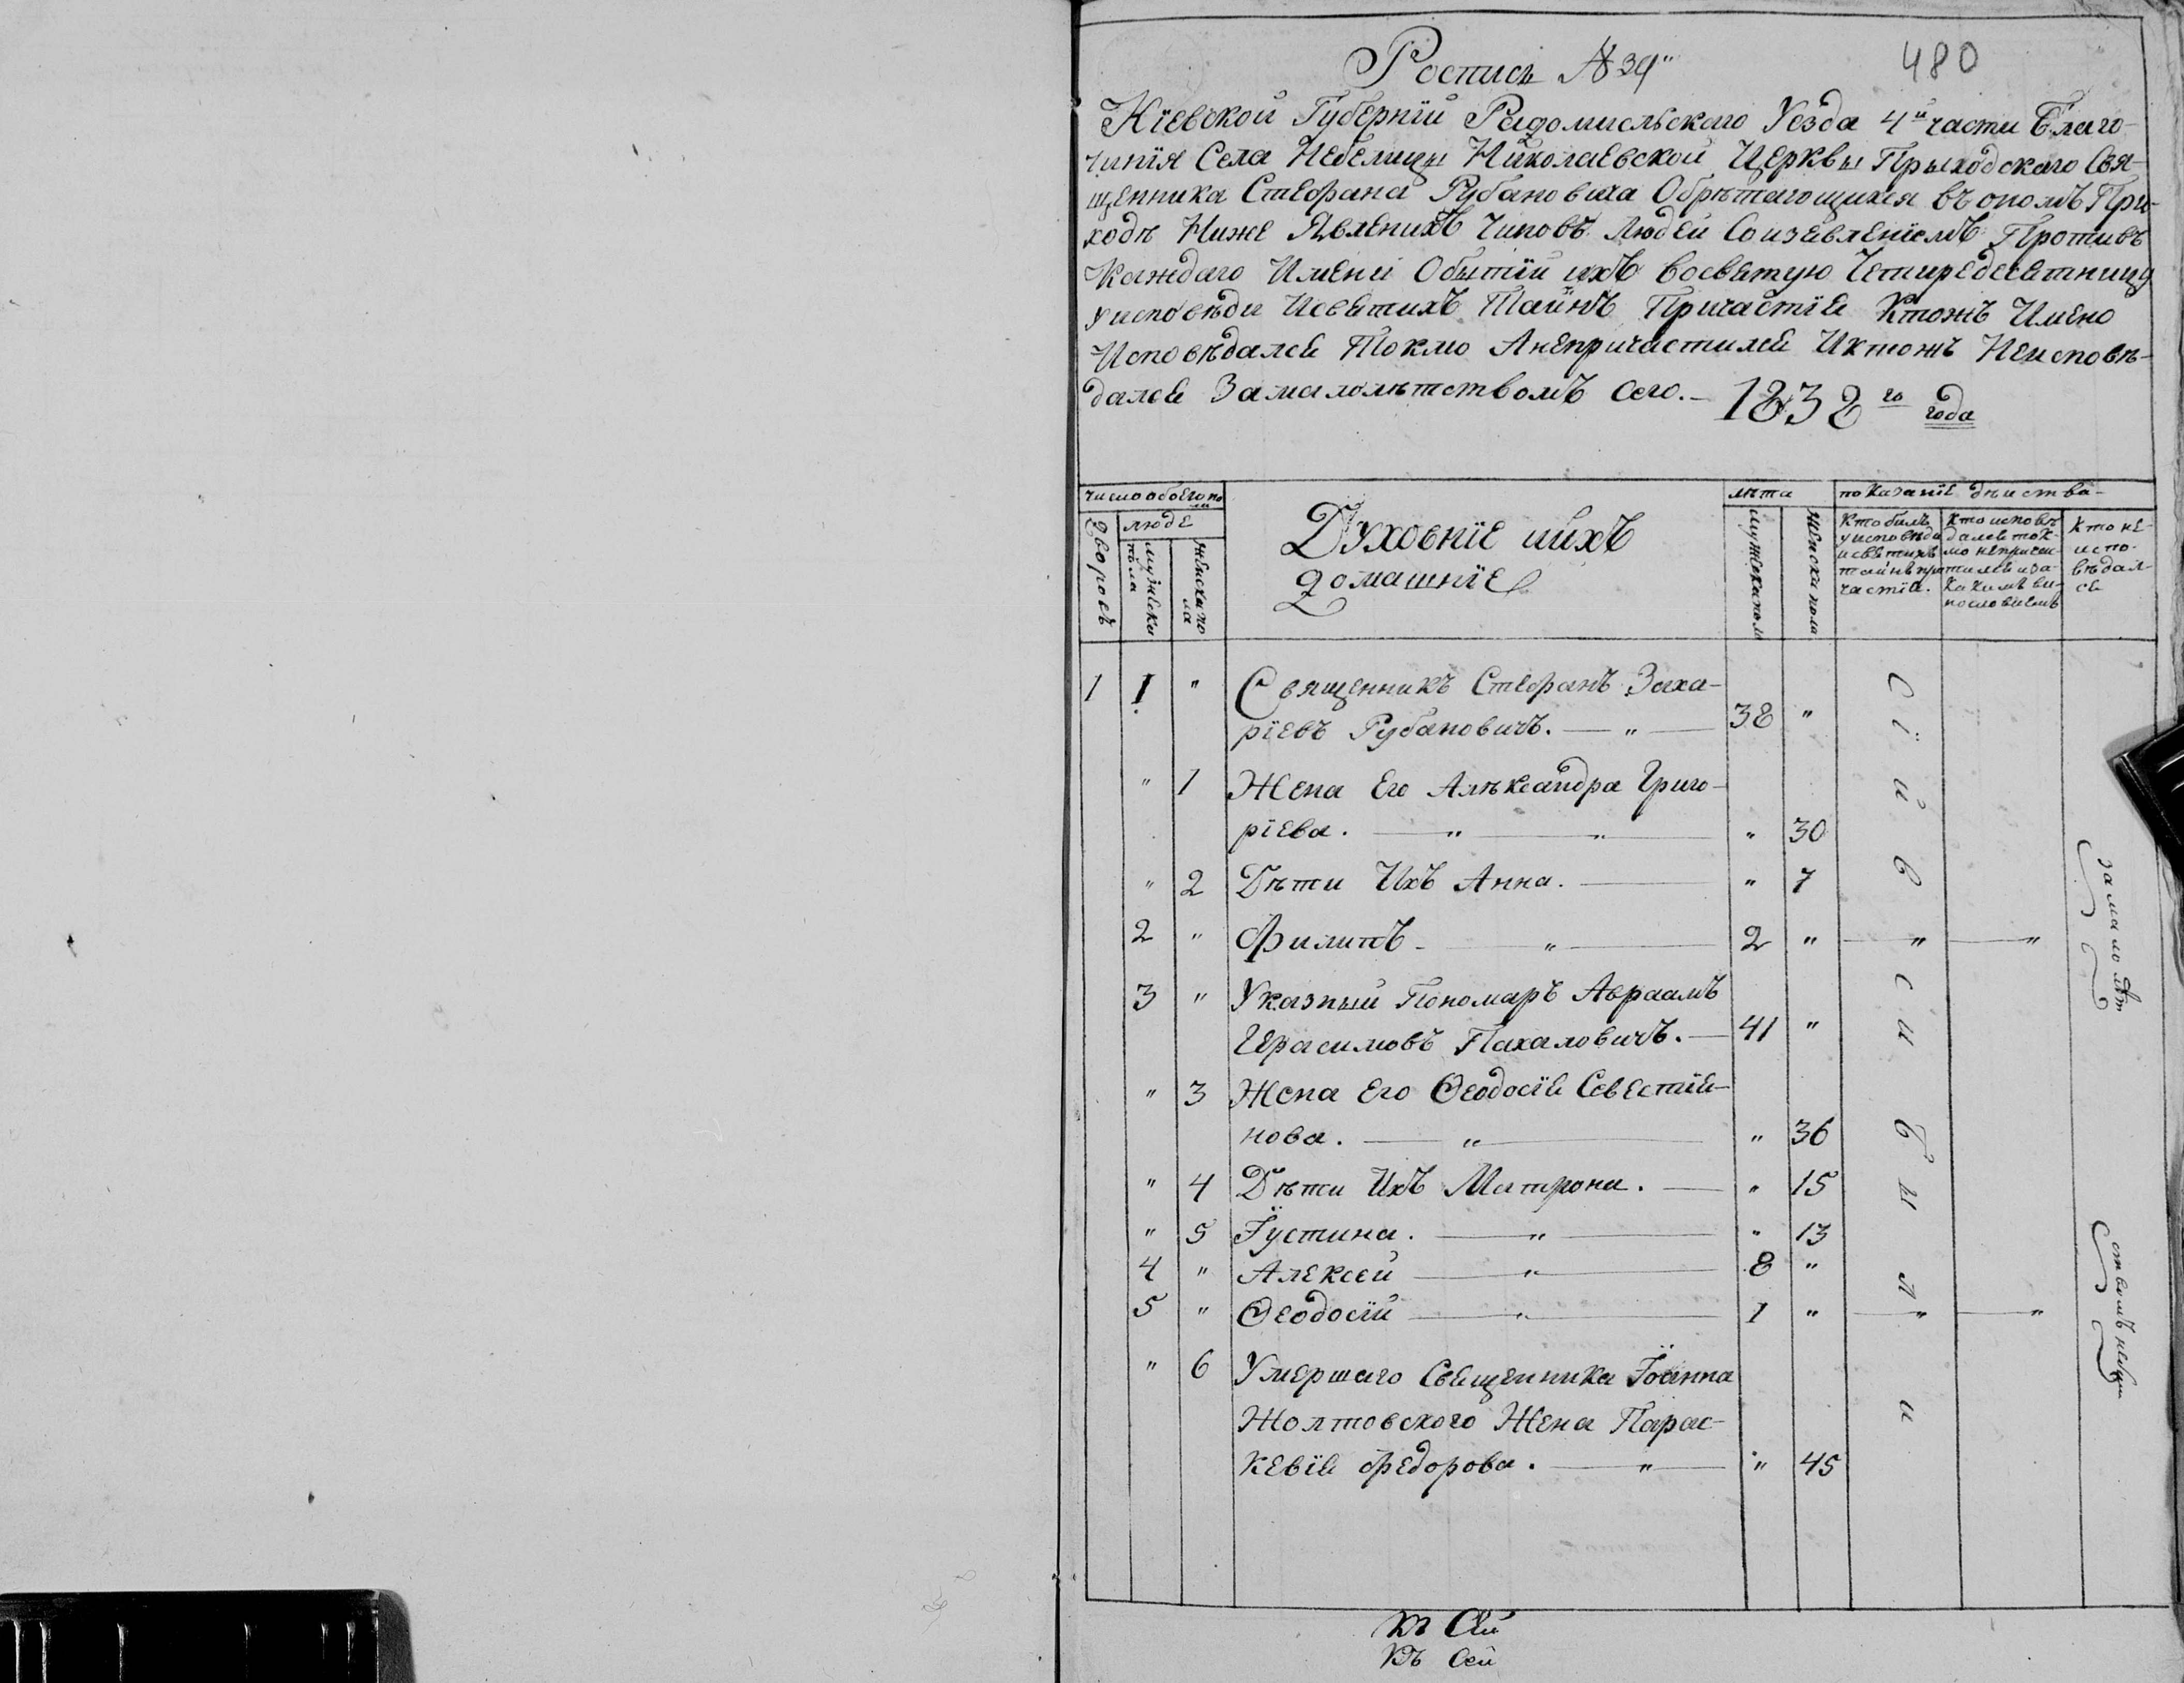 480
Роспись № 39"
Кїевской Губернїи Радомисльского Уезда 4й части Благо-
чинїя Села Небелицы Николаевской Церквы Прыходского Свя-
щенника Стефана Рубановича Обрѣтающихся въ ономъ При-
ходѣ Ниже Явленихъ Чиновъ Людей Соизявленїемъ Противъ
Каждаго Имени Обытїи ихъ Восвятую Четиредесятницу
уисповѣди Исвятихъ Таинъ Причастїя Ктожъ Имено
Исповѣдался Токмо Анепричастился Иктожъ Неисповѣ-
дался Замалолѣтствомъ сего. - 1832го года
число обоего по
ла
Дворовъ
люде
мужеска
пола
женска по
ла
Духовнїе иихъ
домашнїе
лѣта
мужска пола
женска пола
показанїе дѣиства-
Кто билъ
уисповѣди
исвятихъ
таинъ при
частїя.
Кто исповѣ
дался ток-
мо неприча-
тился иза
какимъ ви-
нословїемъ
кто не-
испо-
вѣдал-
ся
1 1 " Священникъ Стефанъ Заха-
рїевъ Рубановичъ. — " — 38 "
" 1 Жена Его Алѣксандра Григо-
рїева. — " — " — " 30
" 2 Дѣти Ихъ Анна. — " 7
2 " Филипъ - — " — 2 " — " — "
3 " Указный Пономаръ Авраамъ
Герасимовъ Пахаловичъ. — 41 "
" 3 Жена Его Ѳеодосїя Севестїя-
нова. — " — " 36
" 4 Дѣти Ихъ Матрона. — " 15
" 5 Їустина. — " — " 13
4 " Алексей — " — 8 "
5 " Ѳеодосїй — " — 1 " — " — "
" 6 Умершаго Священника Їоанна
Жолтовского Жена Парас-
кевїя Федорова. — " — " 45
Сїи вси были
замалолѣт
ствомъ небыли
къ Сей
къ Сей